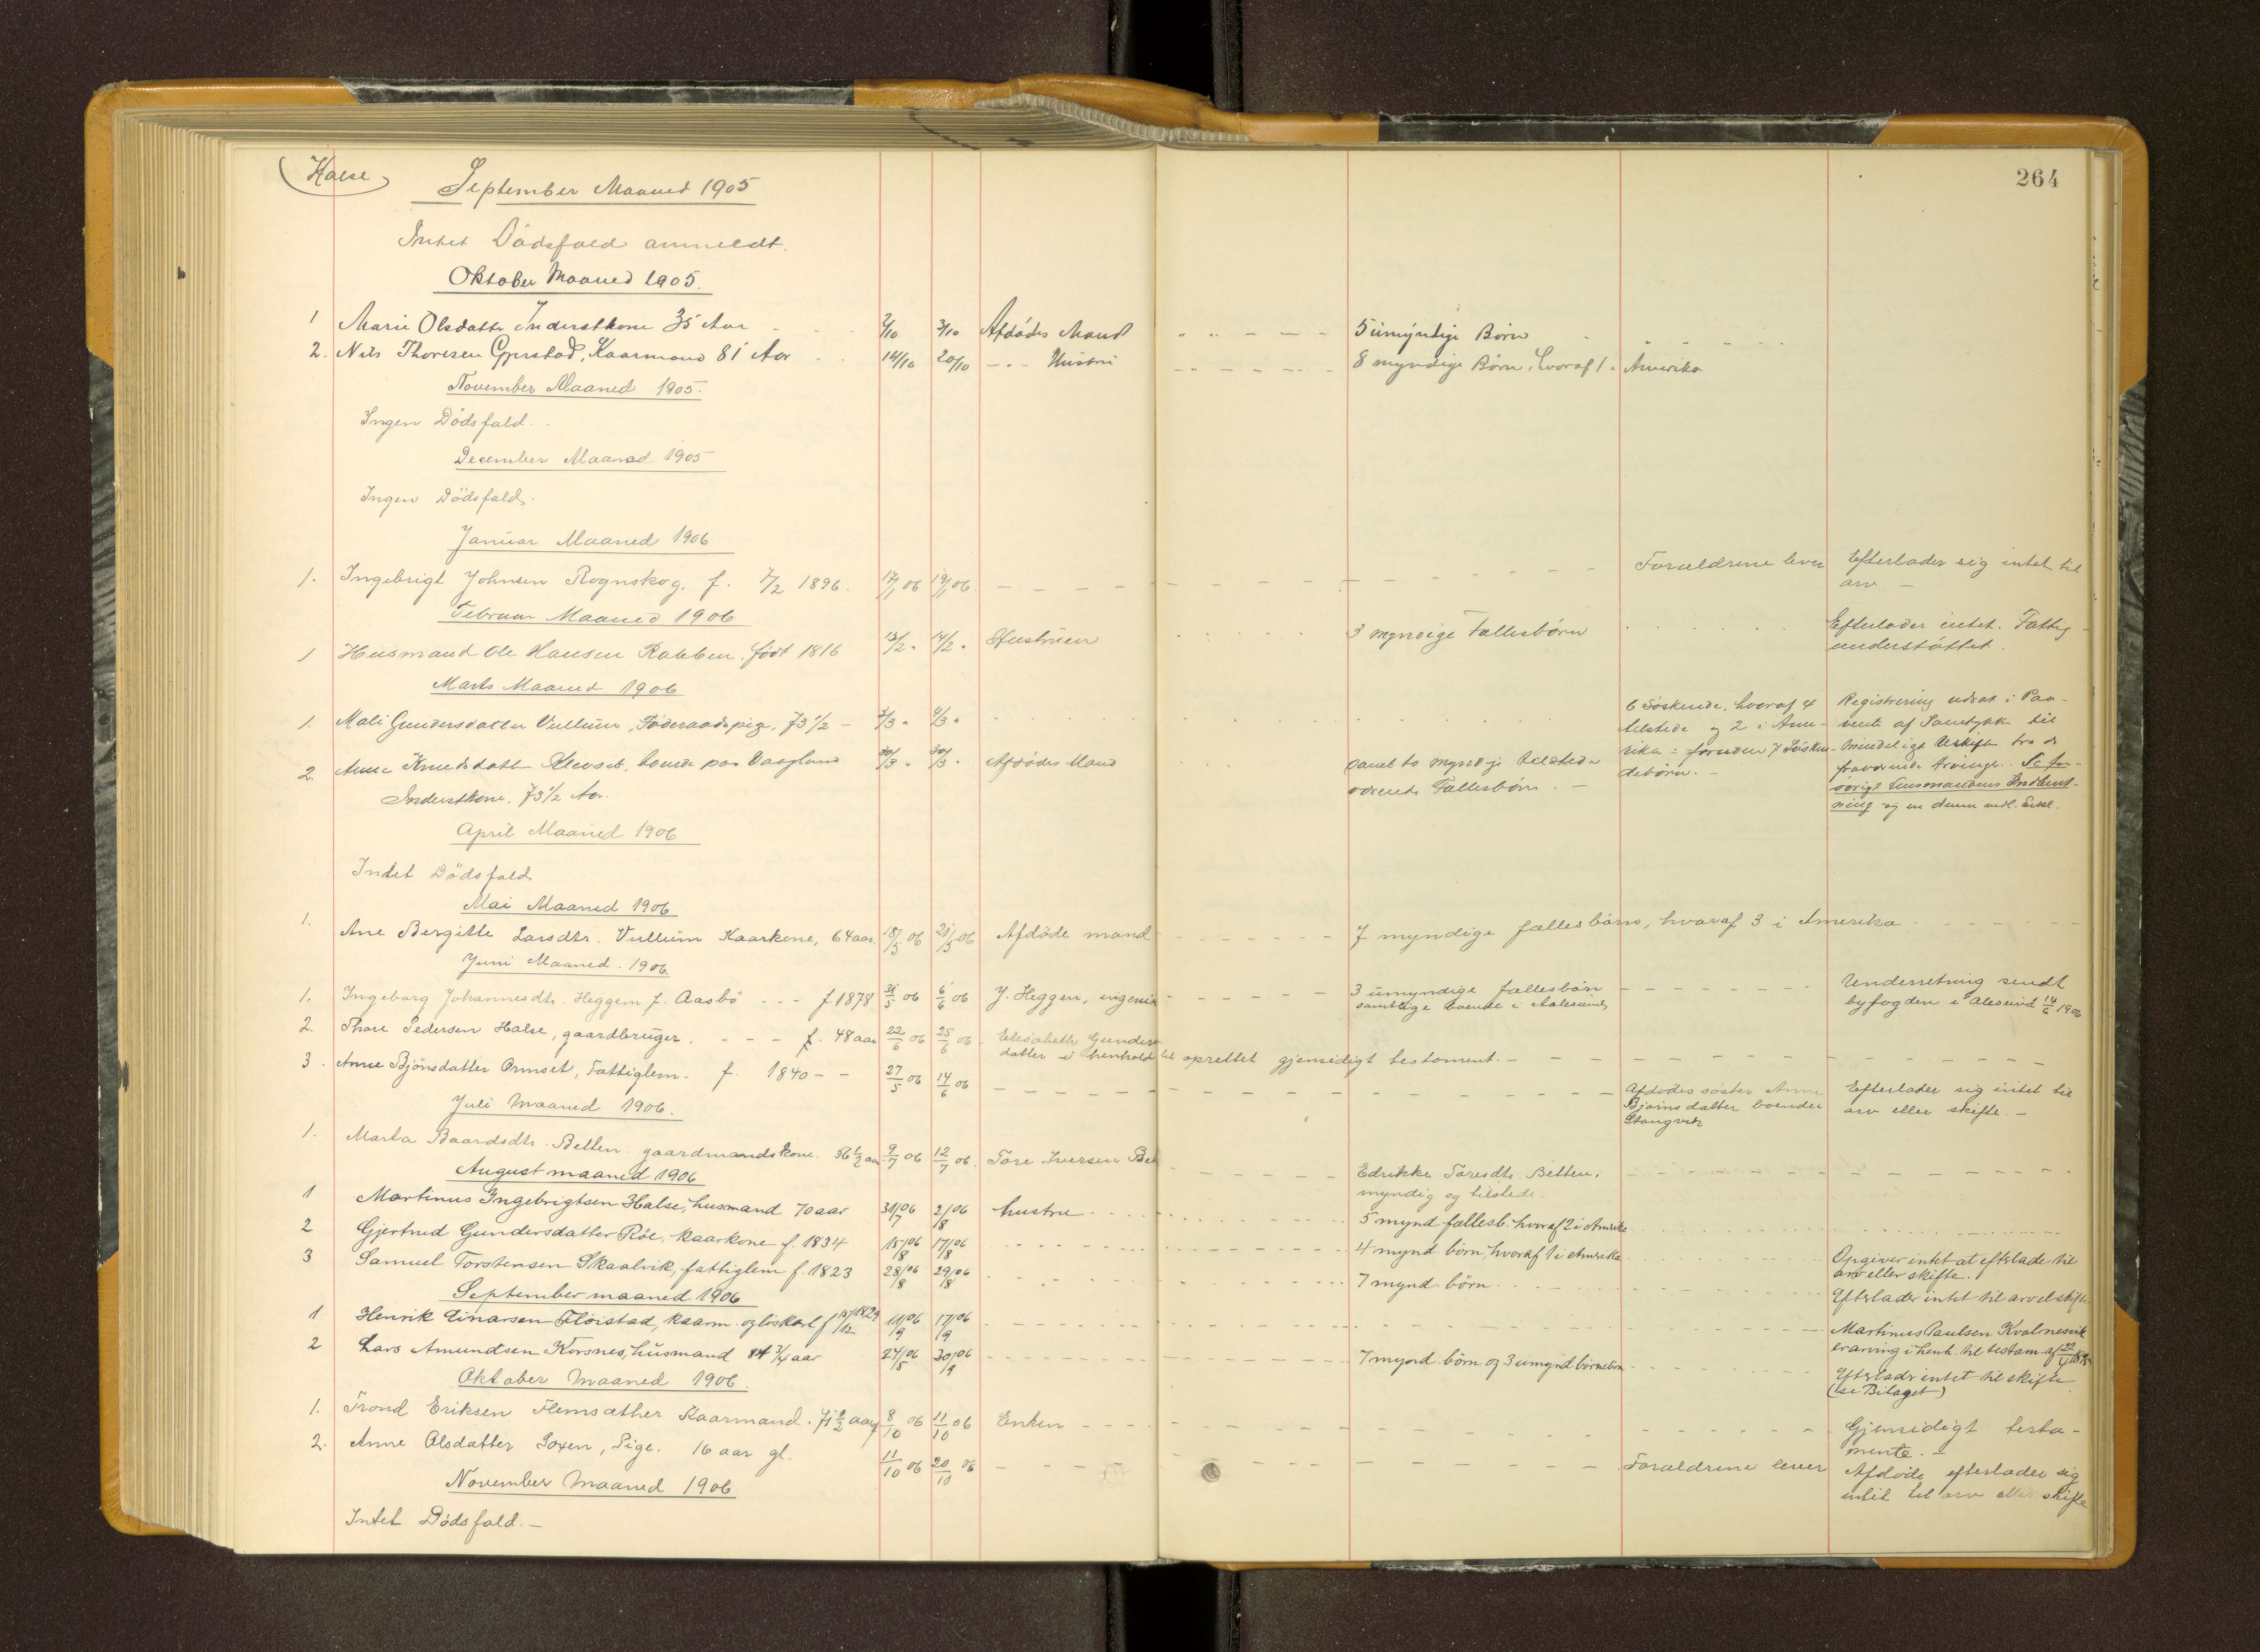 Halse
264
September Maaned 1905
Intet Dödsfald anmeldt.
Oktober Maaned 1905.
1 Marie Olsdatter Inderstkone 35 Aar 2/10 3/10 Afdödes Mand 5 umyndige Börn
2. Nils Thoresen Gjerstad, Kaarmand 81 Aar 14/10 20/10 Hustru 8 myndige Börn, hvoraf 1 i Amerika
November Maaned 1905.
Ingen Dödsfald.
December Maaned 1905
Ingen Dödsfald.
Januar Maaned 1906
1. Ingebrigt Johnsen Rognskog. f. 7/2 1896. 17/1 06 19/1 06. Foræeldrene lever Efterlader sig intet til
arv
Februar Maaned 1906
1 Husmand Ole Hansen Rabben. födt 1816 13/2 14/2 Hustruen 3 myndige Fællesbörn Efterlader intet. Fattig-
understöttet.
Marts Maaned 1906
1. Mali Gundersdatter Vullum, Föderaadspige, 73 1/2 3/3 4/3 6 Söskende, hvoraf 4
tilstede og 2 i Ame-
rika : foruden 7 Sösken-
debörn.
Registrering udsat i Paa-
vent af Samtykke til
mindeligt Udskifte fra de
fraværende Arvinger. Se for-
övrigt Lensmandens Indberet-
ning og en denne vedl. Erkl.
2. Anne Knudsdatt boende paa Vaagland 30/3 30/3 Afdödes Mand myndige tilstede
værende Fællesbörn.
Inderstkone. 73 1/2 Aar.
April Maaned 1906
Intet Dödsfald
Mai Maaned 1906
1. Ane Bergitte Larsdtr. Vullum Kaarkone, 64 aar. 18/5 06 21/5 06 Afdöde mand 7 myndige fællesbörn, hvoraf 3 i Amerika
Juni Maaned. 1906.
1. Ingeborg Johannesdtr. Heggem f. Aasbö f. 1878 31/5 06 6/6 06 J. Heggen, ingeniör 3 umyndige fællesbörn
samtlige boende i Aalesund
Underretning sendt
byfogden i Alesund 14/6 1906
2. Thore Pedersen Halse, gaardbruger. f. 48 aar 22/6 06 25/6 06 Elisabeth Gunders
datter i henhold til oprettet gjensidigt testament.
3. Anne Bjönsdatter Ormset, Fattiglem. f. 1840 27/5 06 14/6 06 Afdødes söster Anne
Bjørnsdatter boende i
Stangvik
Efterlader sig intet til
arv eller skifte.
Juli Maaned 1906.
1. Marta Baardsdtr. Betten gaardmandskone. 56 1/2 aar 9/7 06 12/7 06. Tore Iversen Bet Edrikke Toresdtr. Betten.
myndig og tilstede
August maaned 1906
1 Martinus Ingebrigtsen Halse, husmand 70 aar 31/7 06 2/8 06 hustru 5 mynd fællesb. hvoraf 2 i Amerika
2 Gjertrud Gundersdatter Röe, kaarkone f. 1834 15/8 06 17/8 06 4 mynd. börn, hvoraf 1 i Amerika Opgiver intet at efterlade til
arv eller skifte.
3 Samuel Torstensen Skaalvik, fattiglem f. 1823 28/8 06 29/8 06 7 mynd. börn Efterlader intet til arv el. skifte
September maaned 1906
1 Henrik Einarsen Floistad, kaarm. og löskarl f 15/12 1829 11/9 06 17/9 06 Martinus Paulsen Kvalnesvik
er arving i henh. til testam. af
2 Lars Amundsen Korsnes, husmand 84 3/4 aar 24/5 06 30/9 06 7 mynd. börn og 3 umynd. börnebörn Efterlader intet til skifte
(se Bilaget)
Oktober Maaned 1906.
1. Trond Eriksen Hemsæther Kaarmand. 71 1/2 aar 8/10 06 11/10 06 Enken Gjensidigt testa-
mente.
2. Anne Olsdatter Soxen, Pige. 16 aar gl. 11/10 06 20/10 06 Foræeldrene lever Afdöde efterlader sig
intet til arv eller skifte
November Maaned 1906
Intet Dödsfald.